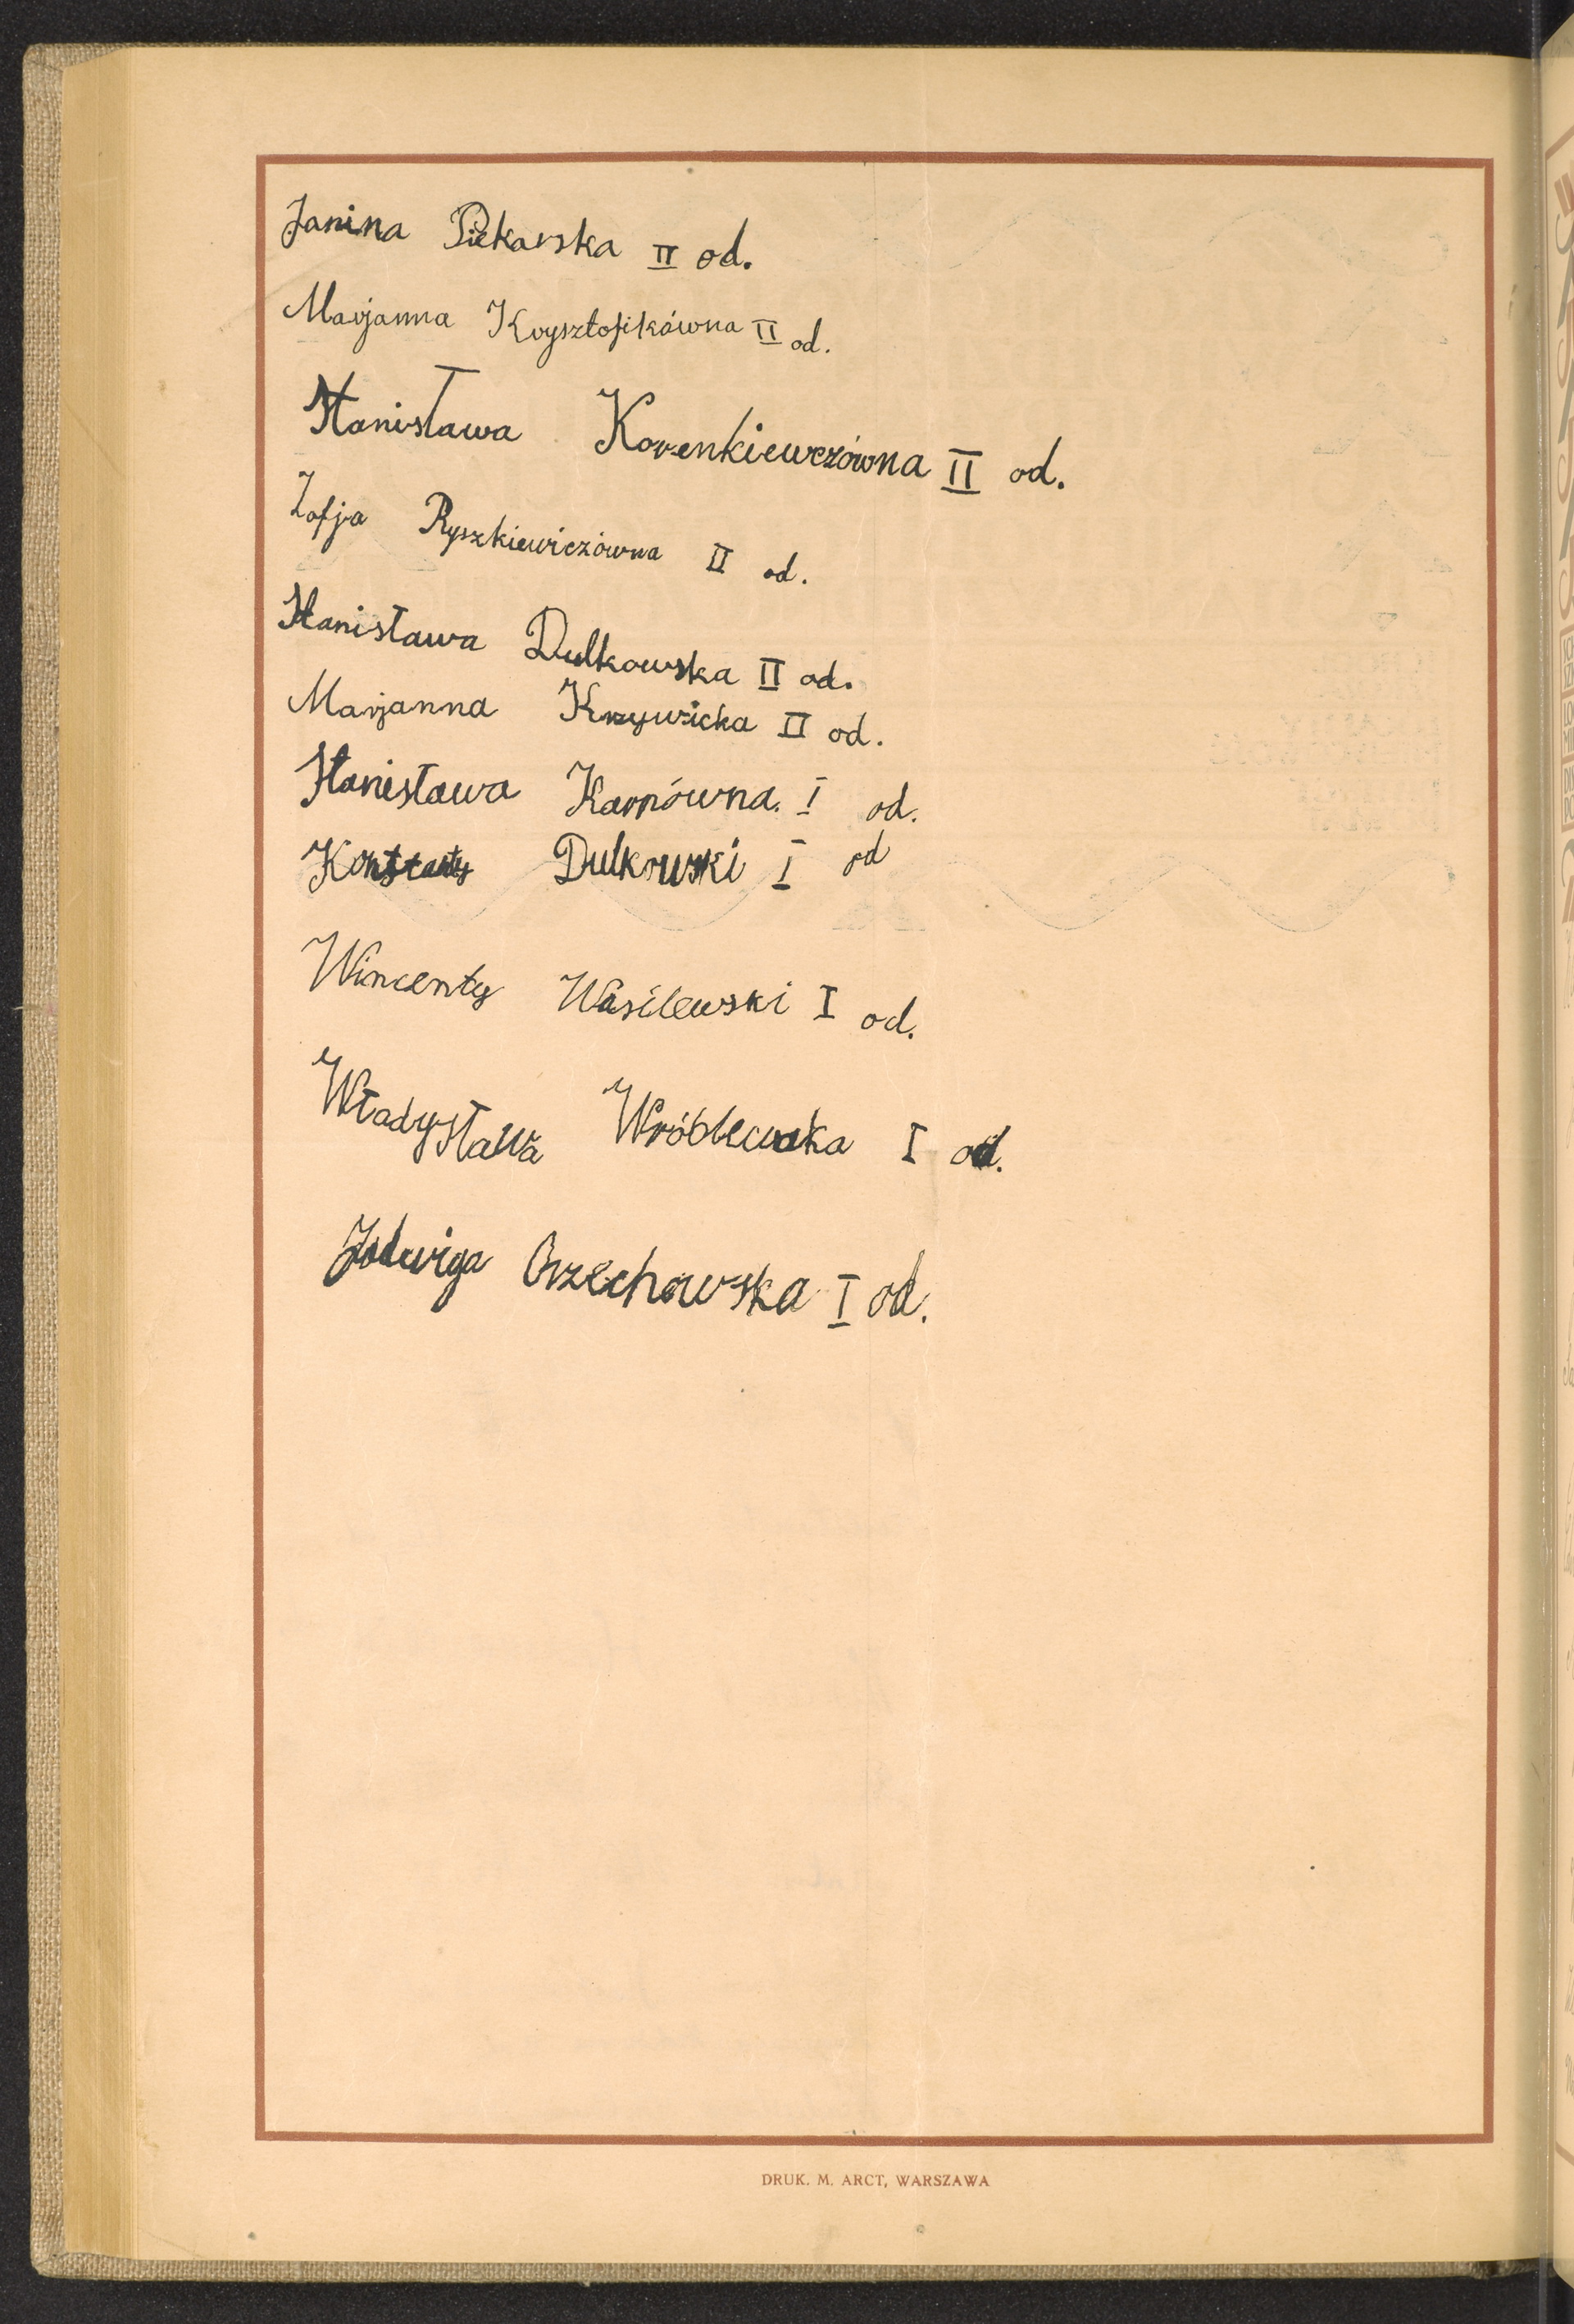 Janina Piekarska II od.
Marjanna Krysztofikówna II od.
Stanisława Korenkiewczówna II od.
Zofja Ryszkiewiczówna II od.
Stanisława Dulkowska II od.
Marjanna Krzywicka II od.
Stanisława Karnówna. I od.
Konstanty Dulkowski I od
Wincenty Wasilewski I od.
Władysława Wróblewska I od.
Jadwiga Orzechowska I od.
DRUK. M. ARCT, WARSZAWA